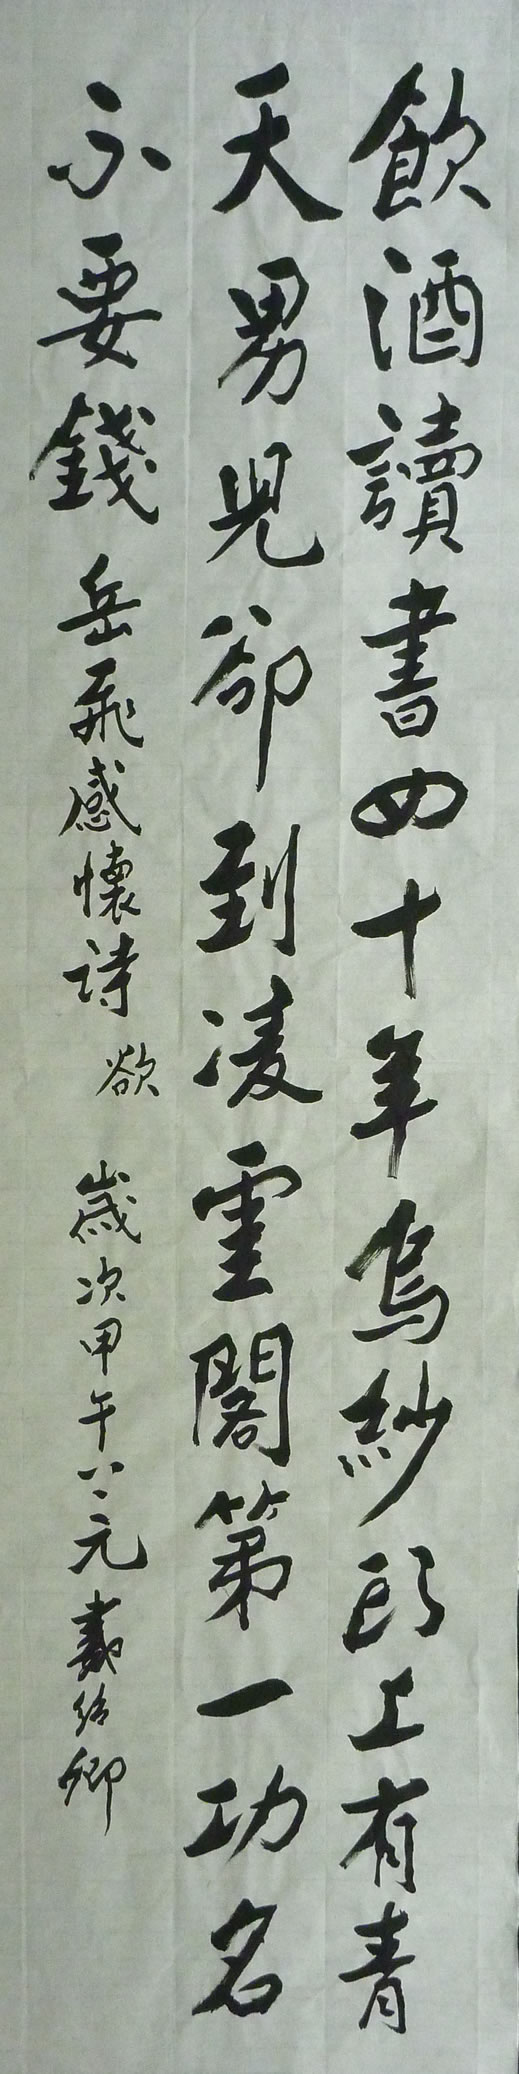 飲酒讀書四十年烏紗頭上有青
天男兒欲到凌雲閣第一功名
不要錢 岳飛感懷詩 欲 歲次甲午 元 卿